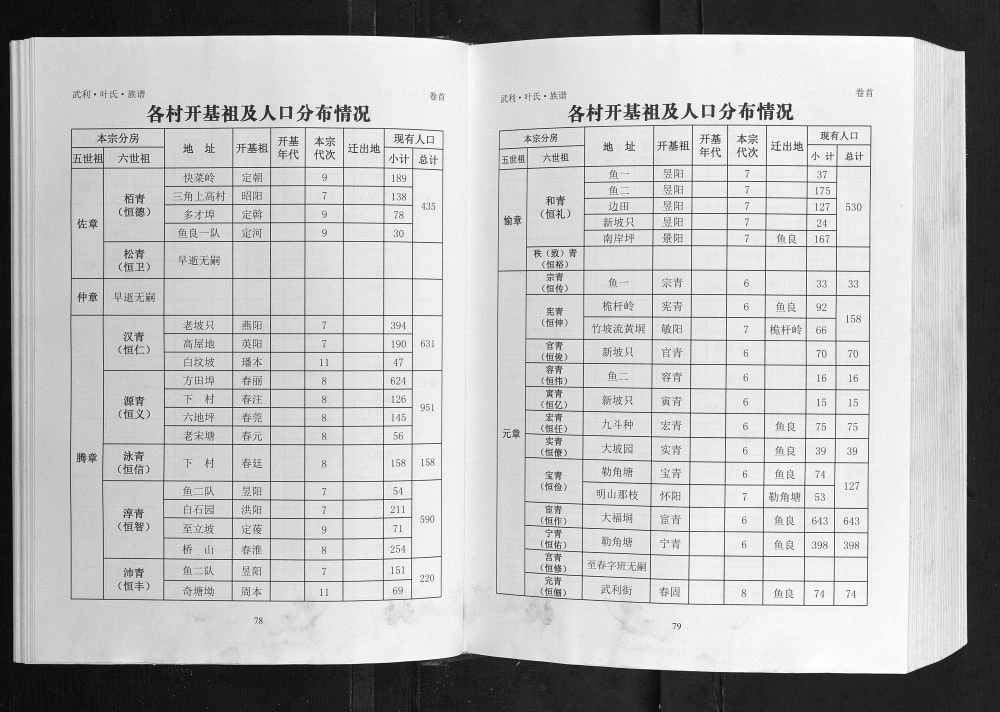 武利·叶氏·族谱 卷首
各村开基祖及人口分布情况
本宗分房 地 址 开基祖 开基年代 本宗代次 迁出地 现有人口
五世祖 六世祖 小计 总计
佐章 栢青（恒德） 快菜岭 定朝 9 189 435
三角上高村 昭阳 7 138
多才埠 定斡 9 78
鱼良一队 定河 9 30
松青（恒卫） 早逝无嗣
仲章 早逝无嗣
腾章 汉青（恒仁） 老坡只 燕阳 7 394 631
高屋地 英阳 7 190
白坟坡 璠本 11 47
源青（恒义） 方田埠 春丽 8 624 951
下 村 春注 8 126
六地坪 春莞 8 145
老宋塘 春元 8 56
泳青（恒信） 下 村 春廷 8 158 158
淳青（恒智） 鱼二队 昱阳 7 54 590
白石园 洪阳 7 211
至立坡 定葰 9 71
桥 山 春淮 8 254
沛青（恒丰） 鱼二队 昱阳 7 151 220
奇塘坳 周本 11 69
78
武利·叶氏·族谱 卷首
各村开基祖及人口分布情况
本宗分房 地 址 开基祖 开基年代 本宗代次 迁出地 现有人口
五世祖 六世祖 小 计 总计
愉章 和青（恒礼） 鱼一 昱阳 7 37 530
鱼二 昱阳 7 175
边田 昱阳 7 127
新坡只 昱阳 7 24
南岸坪 景阳 7 鱼良 167
秩（致）青（恒裕）
元章 宗青（恒传） 鱼一 宗青 6 33 33
宪青（恒伸） 桅杆岭 宪青 6 鱼良 92 158
竹坡流黄垌 敏阳 7 桅杆岭 66
官青（恒俊） 新坡只 官青 6 70 70
容青（恒伟） 鱼二 容青 6 16 16
寅青（恒亿） 新坡只 寅青 6 15 15
宏青（恒任） 九斗种 宏青 6 鱼良 75 75
实青（恒僚） 大坡园 实青 6 鱼良 39 39
宝青（恒俭） 勒角塘 宝青 6 鱼良 74 127
明山那枝 怀阳 7 勒角塘 53
宦青（恒作） 大福垌 宦青 6 鱼良 643 643
宁青（恒佑） 勒角塘 宁青 6 鱼良 398 398
宫青（恒修） 至春字班无嗣
完青（恒俪） 武利街 春固 8 鱼良 74 74
79